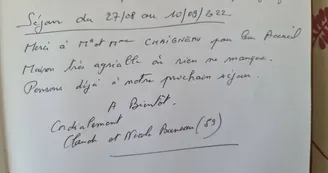 Séjour du 27/08 au 10/09/2022
Merci à Mr et Mme CHAIGNEAU pour leur Accueil
Maison très agréable où rien ne manque.
Pensons déjà à notre prochain séjour.
A Bientôt.
Cordialement
Claude et Nicole (59)